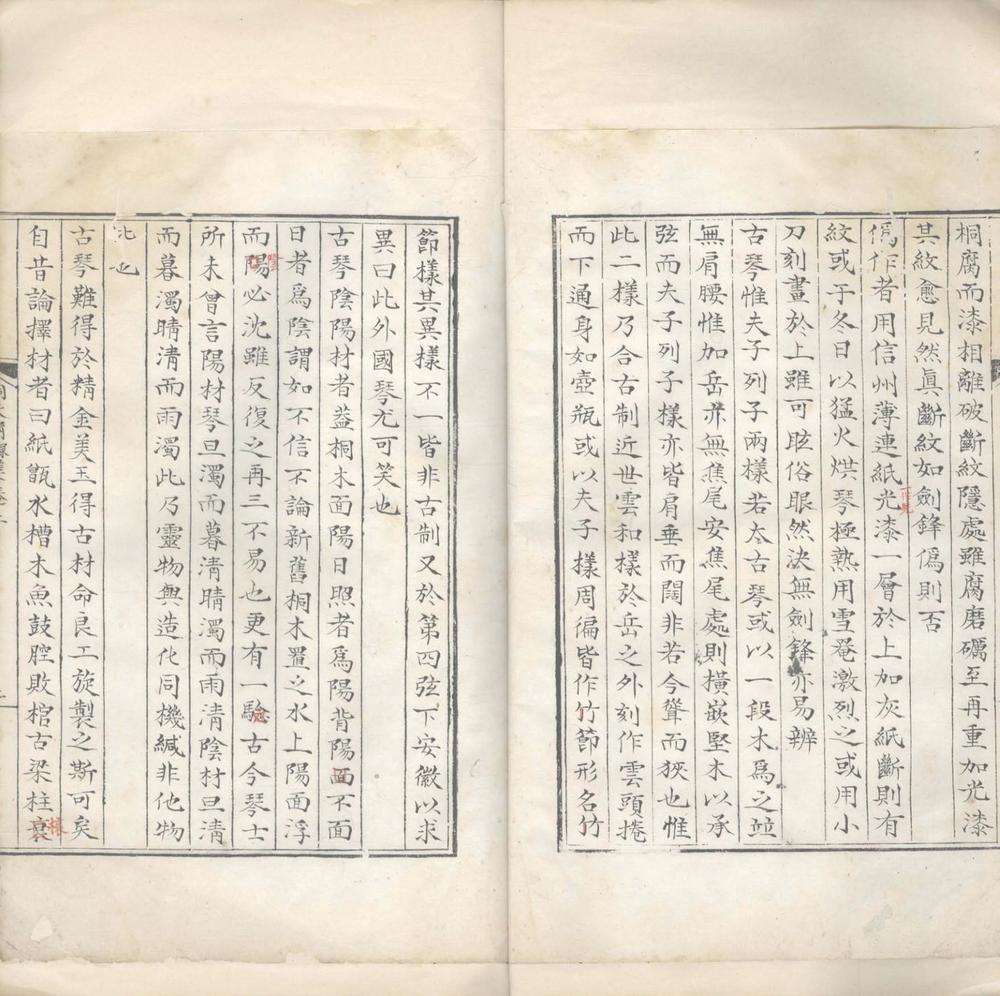 桐腐而漆相離破斷紋隱處雖腐磨礪至再重加光漆
其紋愈見然眞斷紋如劍鋒僞則否
僞作者用信州薄連紙光漆一層於上加灰紙斷則有
紋或于冬日以猛火烘琴極熱用雪罨激烈之或用小
刀刻畫於上雖可眩俗眼然決無劍鋒亦易辨
古琴惟夫子列子兩樣若太古琴或以一段木爲之並
無肩腰惟加岳亦無焦尾安焦尾處則橫嵌堅木以承
弦而夫子列子樣亦皆肩垂而闊非若今聳而狹也惟
此二樣乃合古制近世雲和樣於岳之外刻作雲頭捲
而下通身如壺瓶或以夫子樣周徧皆作竹節形名竹
節樣其異樣不一皆非古制又於第四弦下安徽以求
異曰此外國琴尤可笑也
古琴陰陽材者葢桐木面陽日照者爲陽背陽面不面
日者爲陰謂如不信不論新舊桐木置之水上陽面浮
而陽必沈雖反復之再三不易也更有一驗古今琴士
陰
所未曾言陽材琴旦濁而暮清晴濁而雨清陰材旦清
而暮濁晴清而雨濁此乃靈物與造化同機緘非他物
比也
古琴難得於精金美玉得古材命良工旋製之斯可矣
自昔論擇材者曰紙甑水槽木魚鼓腔敗棺古梁柱衰
榱